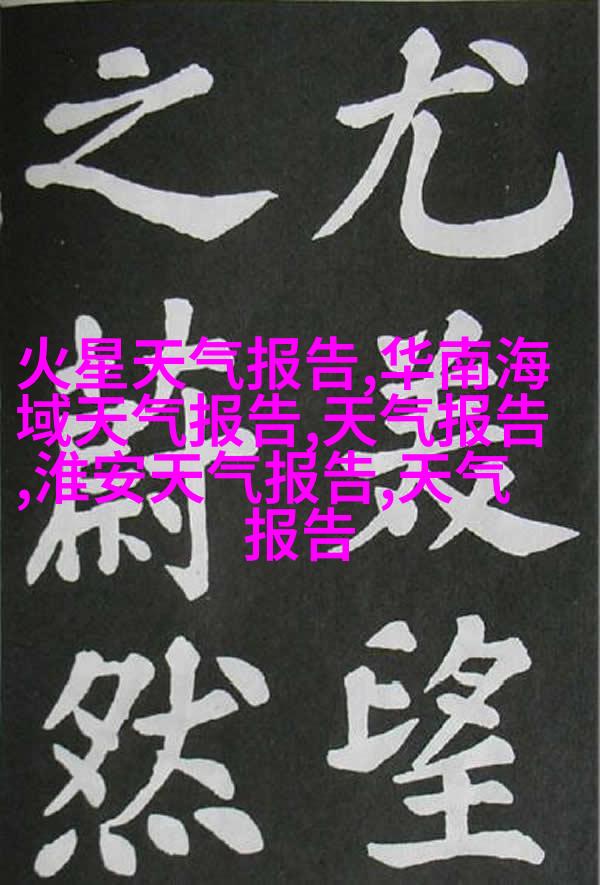 尤美望
之蔚然
火星天气报告,华南海
域天气报告,天气报告
,淮安天气报告,天气
报告